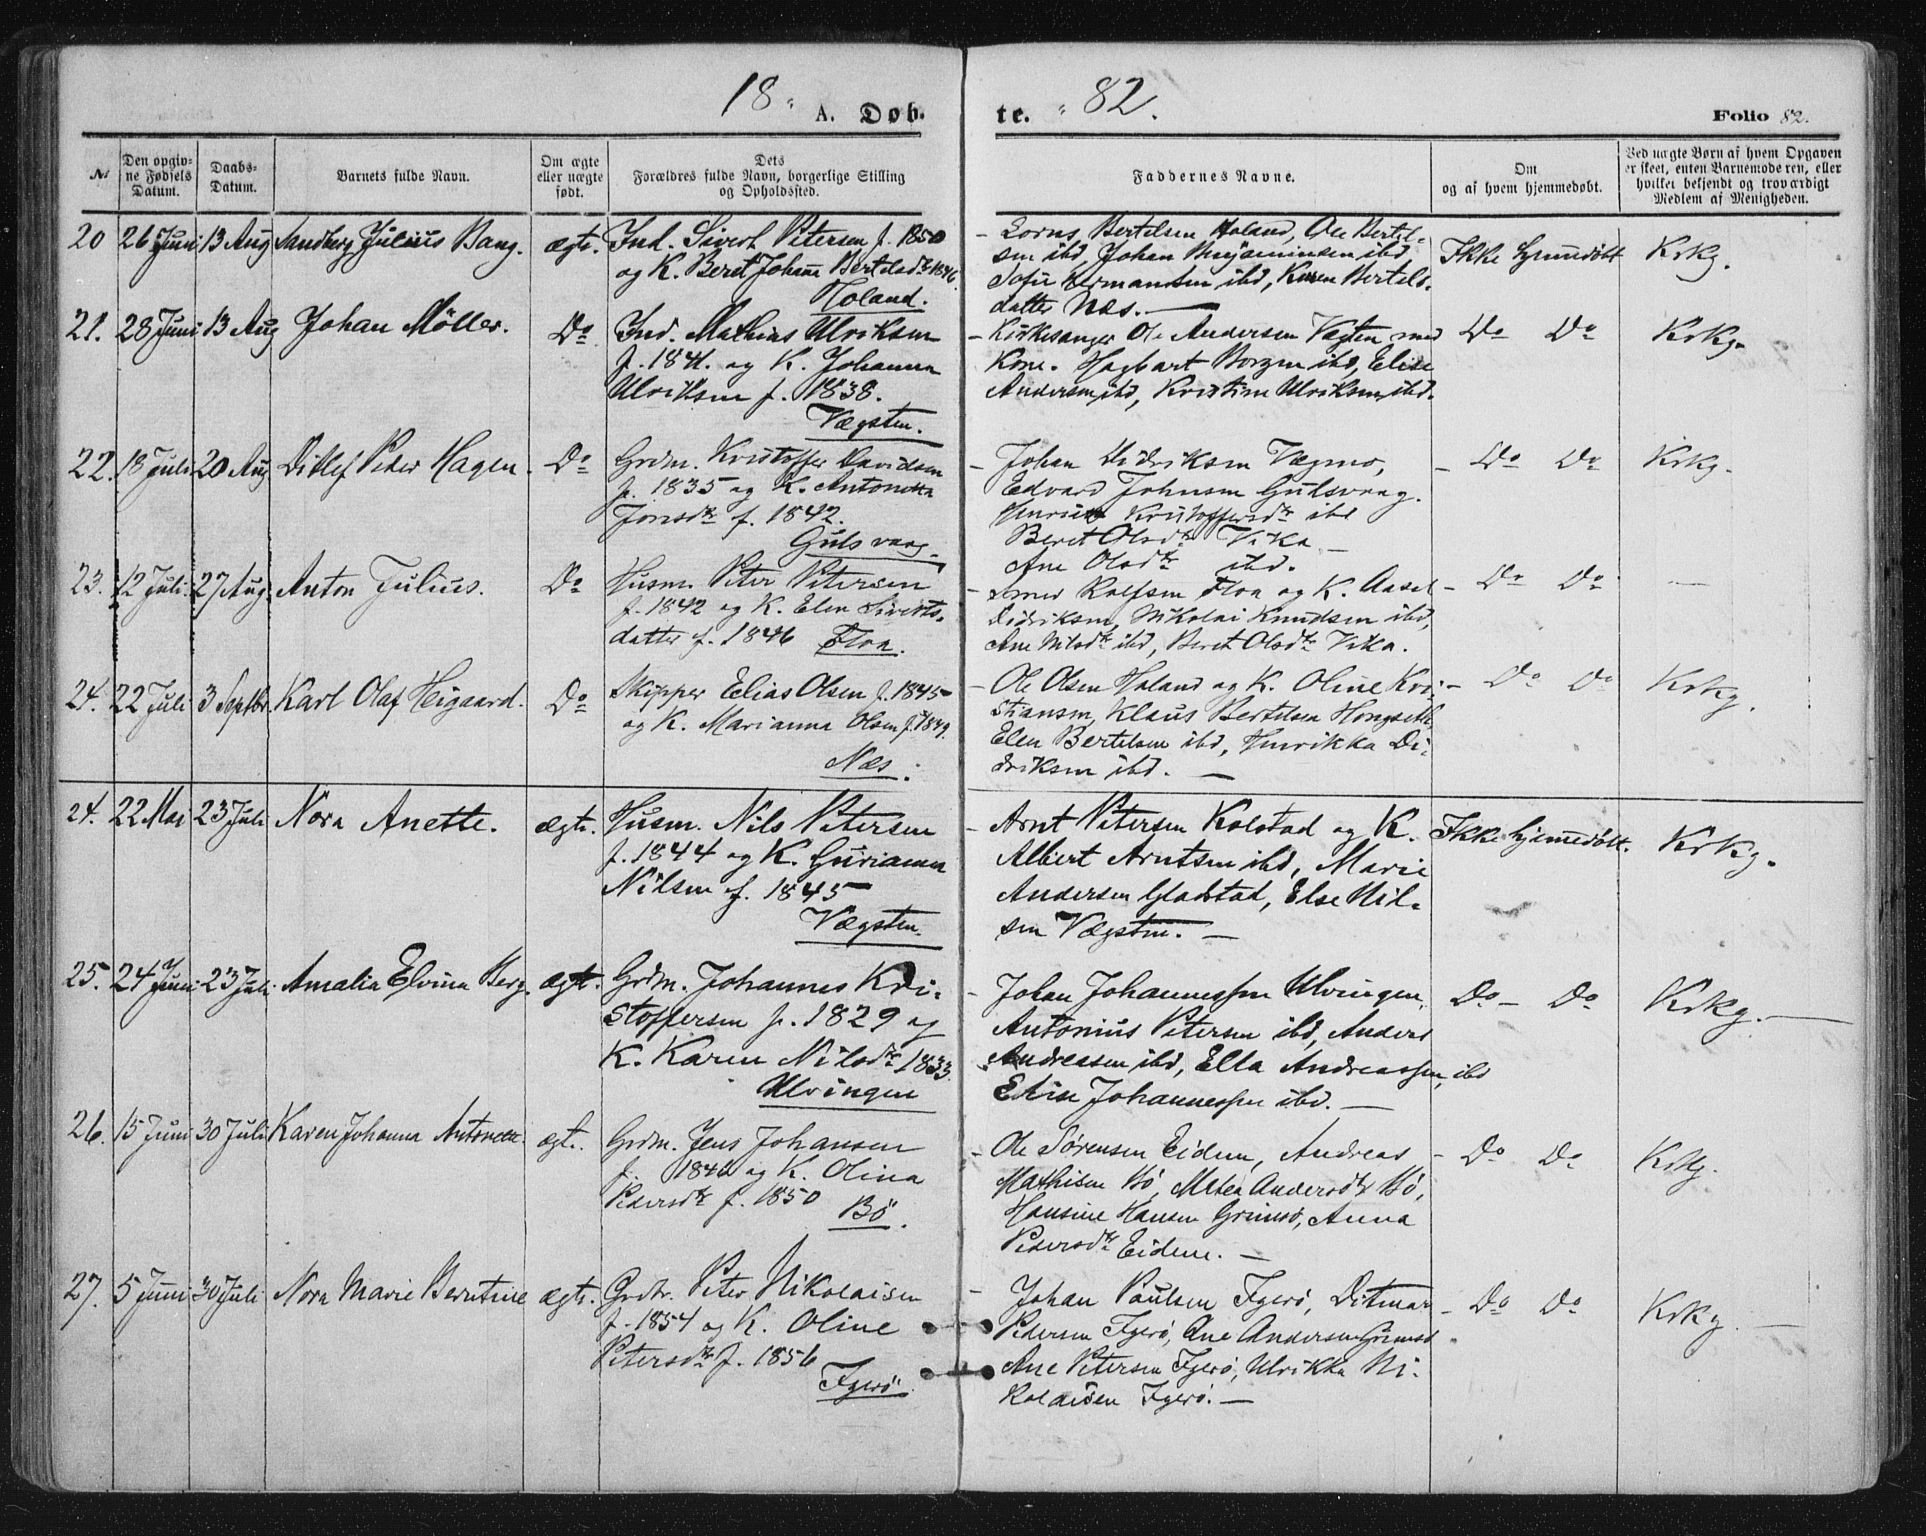 18 " A. Døb-
te. " 82.
Folio 82.
№
Den opgiv-
ne Fødsels
Datum.
Daabs-
Datum.
Barnets fulde Navn.
Om ægte
eller uægte
født.
Dets
Forældres fulde Navn, borgerlige Stilling
og Opholdssted.
Faddernes Navne.
Om
og af hvem hjemmedøbt.
Ved uægte Børn af hvem Opgaven
er skeet, enten Barnemoderen, eller
hvilket bekjendt og troværdigt
Medlem af Menigheden.
20 26 Juni 13 Aug Sandberg Julius Bang. ægte.
Ind. Sivert Petersen f. 1850
og K. Beret Johanna Bertelsdtr 1846.
Holand.
Bertelsen Holand, Ole Bertel-
sen ibd, Johan Benjaminsen ibd
Sofie Hermansen ibd, Karen Bertels-
datter Næs. —
Ikke hjemmedøbt Krkg.
21. 28 Juni 13 Aug Johan Möller. Do
Ind. Mathias Ulriksen
f. 1841. og K. Johanna
Ulriksen f. 1838.
Vægsten.
- Kirkesanger Ole Andersen Vægten med
Kone. Hagbart Borgen ibd, Elise
Andersen ibd, Kristine Ulriksen ibd.
Do Do Krkg.
22. 18 Juli 20 Aug Ditlef Peder Hagen. Do
Grdm. Kristoffer Davidsen
f. 1835 og K. Antonetta
Jonsdtr f. 1842.
Gulsvaag.
- Johan Didriksen Vægmo,
Edvard Johnsen Gulsvaag.
Kristoffersdtr ibd
Beret Olsdtr Vika —
Ane Olsdtr ibd.
- Do Do Krkg.
23. 12 Juli. 27 Aug. Anton Julius. Do
Husm. Peter Petersen
f. 1842 og K. Elen Siverts-
datter f. 1846 Floa.
- Rolfsen Floa og K. Aasel
Didriksen, Nikolai Knudsen ibd,
Ane Nilsdtr ibd, Beret Olsdtr Vika.
- Do Do —
24. 22 Juli 3 Septbr. Karl Olaf Heigaard. Do
Skipper Elias Olsen f. 1845
og K. Marianna Olsen f. 1849.
Næs.
- Ole Olsen Holand og K. Oline Kri-
stiansen, Klaus Bertelsen Hongseth
Elen Bertelsen ibd, Henrikka Di-
driksen ibd. —
- Do Do Krkg.
24. 22 Mai 23 Juli Nora Anette. ægte.
Husm. Nils Petersen
f. 1844 og K. Gurianna
Nilsen f. 1845
Vægsten.
- Arnt Petersen Kolstad og K.
Albert Arntsen ibd, Marie
Andersen Gladstad, Else Nil-
sen Vægsten. —
Ikke hjemmedøbt. Krkg.
25. 24 Juni 23 Juli. Amalia Elvina Berg. ægt.
Grdm. Johannes Kri-
stoffersen f. 1829 og
K. Karen Nilsdtr 1833.
Ulvingen
- Johan Johannessen Ulvingen,
Antonius Petersen ibd, Anders
Andreasen ibd, Ella Andreassen, ibd
Elise Johannessen ibd. —
Do - Do Krkg. —
26. 15 Juni 30 Juli Karen Johanna Antonette. ægt.
Grdm. Jens Johansen
f. 1846 og K. Olina
Pedersdtr f. 1850 Bö.
- Ole Sörensen Eidem, Andreas
Mathisen Bö, Metea Andersdtr Bö,
Hansine Hansen Grimsö, Anna
Pedersdtr Eidem. —
- Do Do Krkg.
27. 5 Juni 30 Juli Nora Marie Berntine ægte.
Grdbr. Peter Nikolaisen
f. 1854 og K. Oline
Petersdtr f. 1856
Igerö.
- Johan Paulsen Igerö, Ditmar
Pedersen Igerö, Ane Andersen Grimsö
Ane Petersen Igerö, Ulrikka Ni-
kolaisen Igerö. —
- Do Do Krkg. —